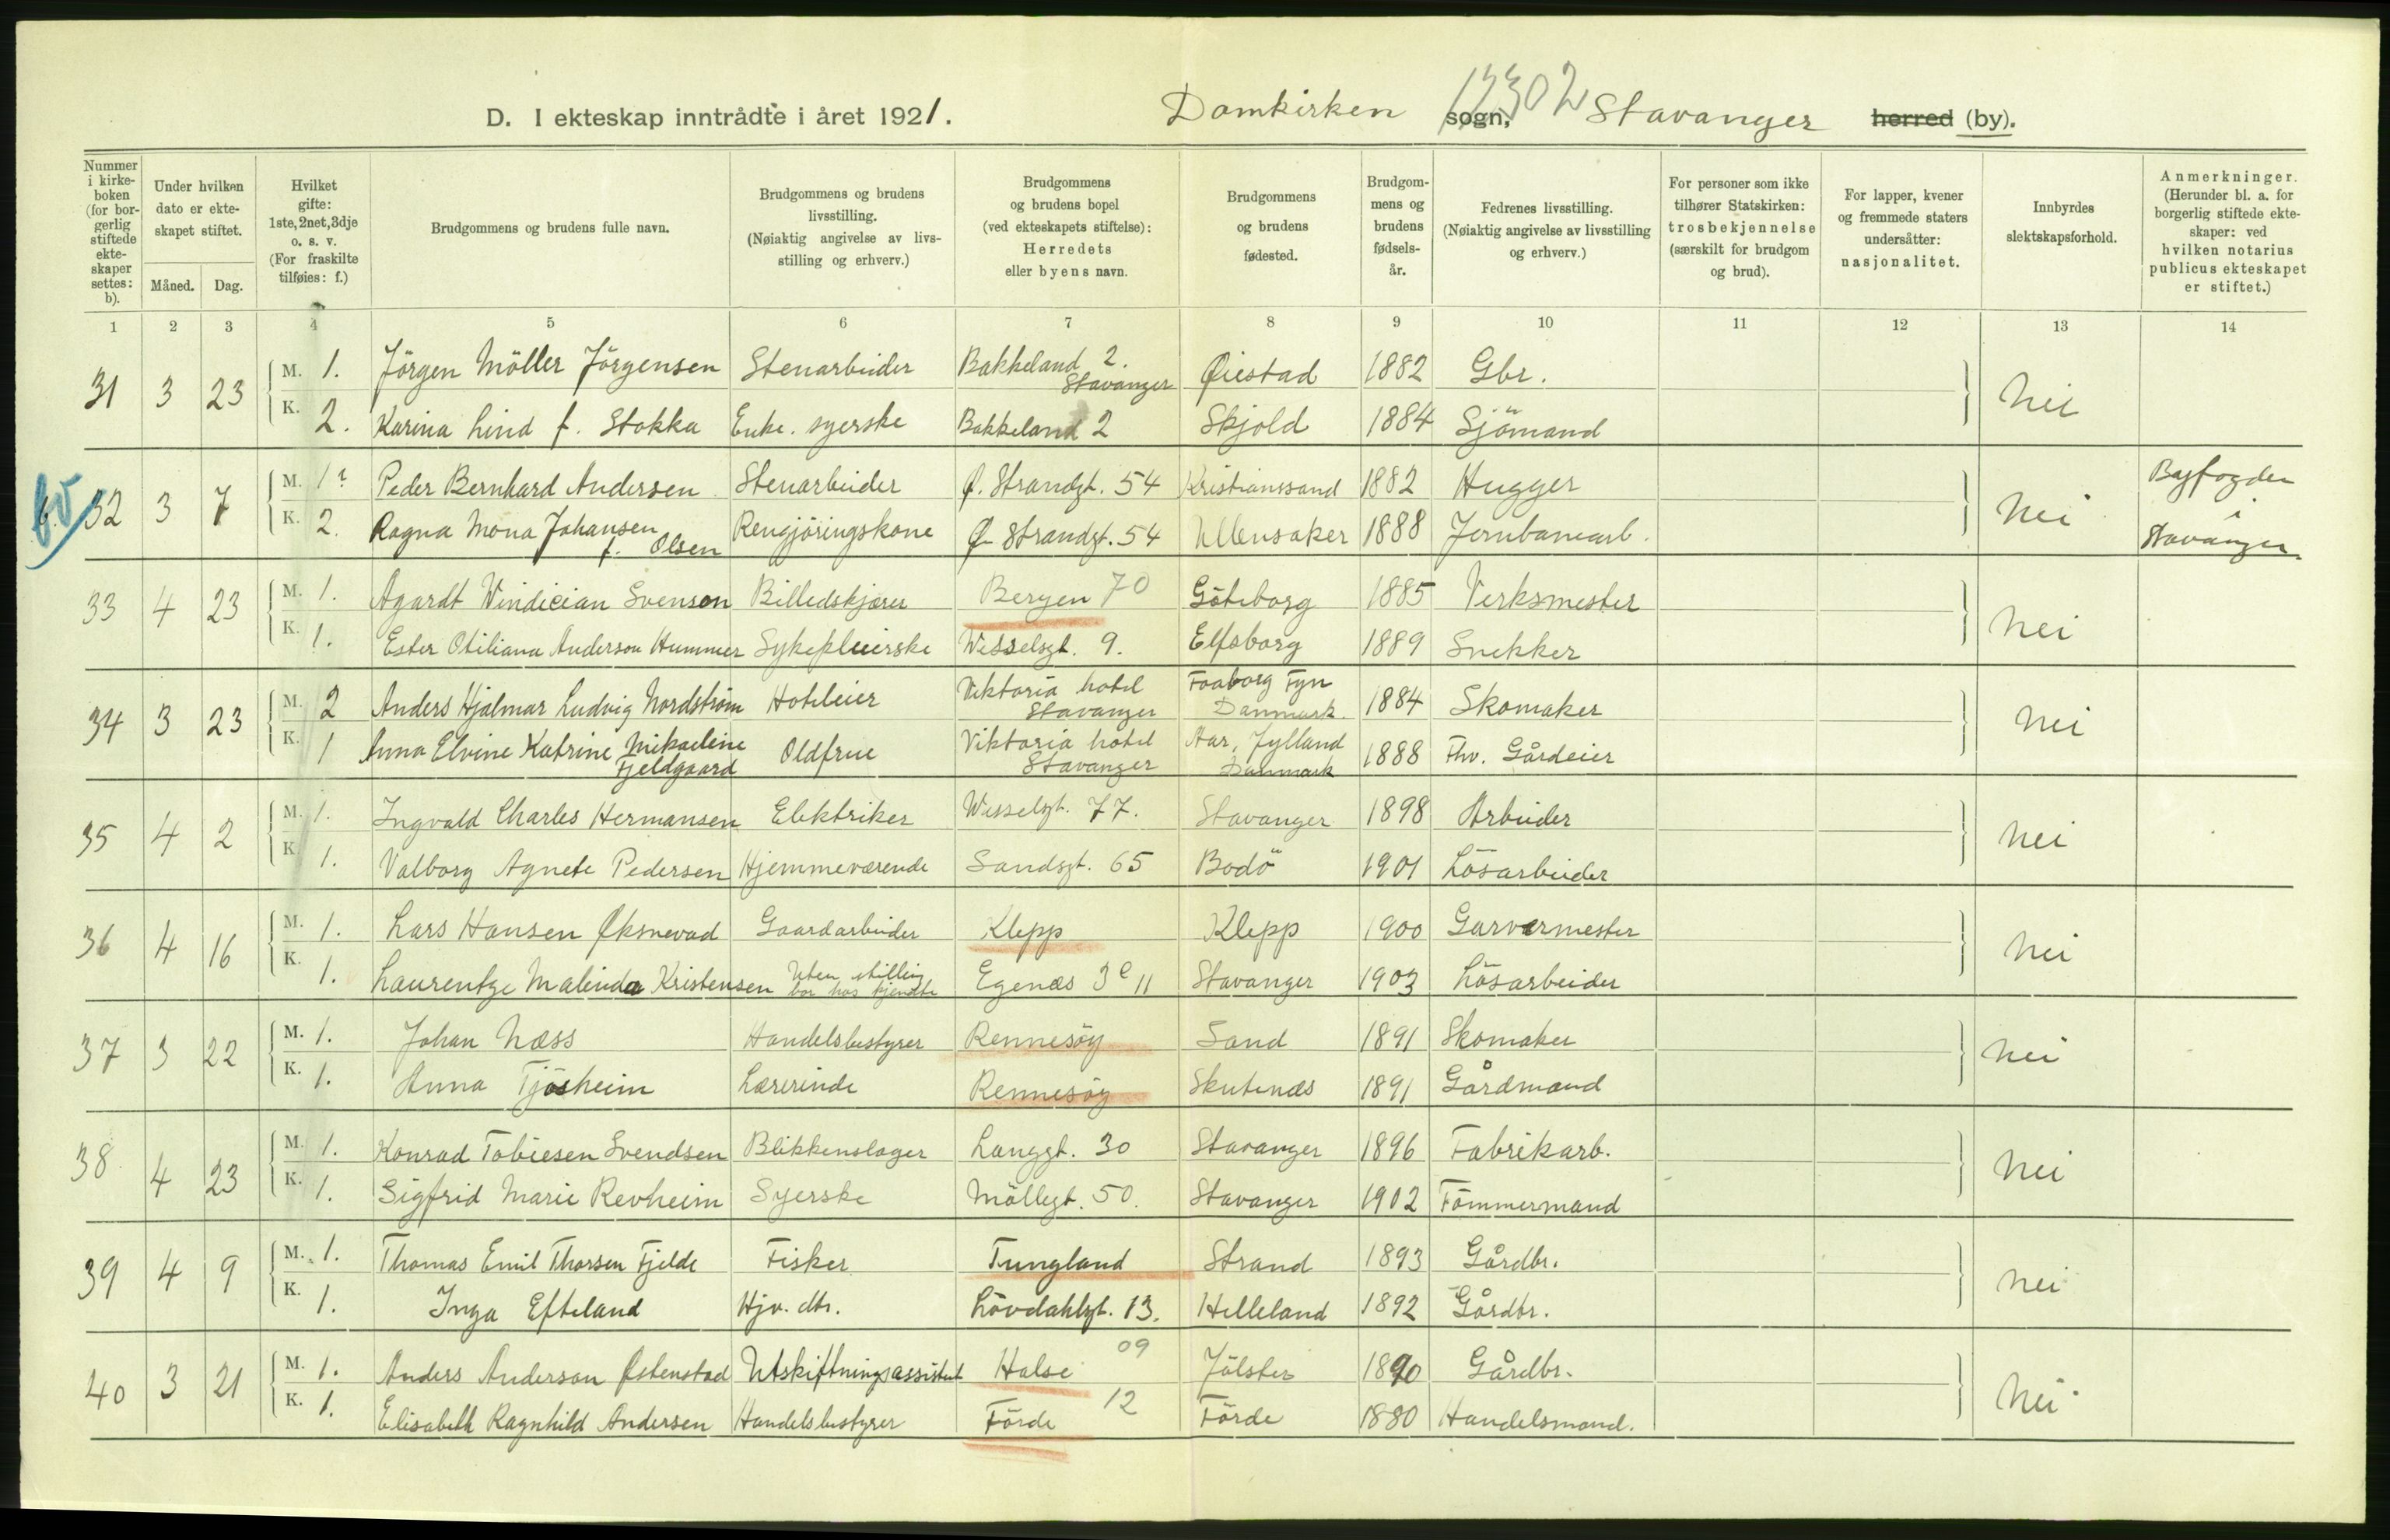 D. I ekteskap inntrådte i året 1921. Domkirken sogn, 12302 Stavanger herred (by).
Nummer i kirkeboken (for borgerlig stiftede ekteskaper settes: b).
Under hvilken dato er ekteskapet stiftet.
Måned. Dag.
Hvilket gifte: 1ste, 2net, 3dje o. s. v. (For fraskilte tilføies: f.)
Brudgommens og brudens fulle navn.
Brudgommens og brudens livsstilling. (Nøiaktig angivelse av livsstilling og erhverv.)
Brudgommens og brudens bopel (ved ekteskapets stiftelse): Herredets eller byens navn.
Brudgommens og brudens fødested.
Brudgommens og brudens fødselsår.
Fedrenes livsstilling. (Nøiaktig angivelse av livsstilling og erhverv.)
For personer som ikke tilhører Statskirken: trosbekjennelse (særskilt for brudgom og brud).
For lapper, kvener og fremmede staters undersåtter: nasjonalitet.
Innbyrdes slektskapsforhold.
Anmerkninger. (Herunder bl. a. for borgerlig stiftede ekteskaper: ved hvilken notarius publicus ekteskapet er stiftet.)
1 2 3 4 5 6 7 8 9 10 11 12 13 14
31 3 23 M. 1. Jörgen Möller Jörgensen Stenarbeider Bakkeland 2. Stavanger Øiestad 1882 Gbr. Nei
K. 2. Karina Lind f. Stokka Enke. syerske Bakkeland 2 Skjold 1884 Sjömand
b. 32 3 7 M. 1 Peder Bernhard Andersen Stenarbeider Ø. Strandgt. 54 Kristianssand 1882 Hugger Nei Byfogden i Stavanger
K. 2. Ragna Mona Johansen f. Olsen Rengjöringskone Ø. Strandgt. 54 Ullensaker 1888 Jernbanearb.
33 4 23 M. 1. Agardt Windician Svenson Billedskjærer Bergen 70 Göteborg 1885 Verksmester Nei
K. 1. Ester Otiliana Anderson Hummer Sykepleierske Wesselsgt. 9. Elfsborg 1889 Snekker
34 3 23 M. 2 Anders Hjalmar Ludvig Nordström Hoteleier Viktoria hotel Stavanger Faaborg Fyn Danmark. 1884 Skomaker Nei
K. 1 Anna Elvine Katrine Mikaeline Fjeldgaard Oldfrue Viktoria hotel Stavanger Aar, Jylland Danmark 1888 Fhv. Gårdeier
35 4 2 M. 1. Ingvald Charles Hermansen Elektriker Wesselsgt. 77. Stavanger 1898 Arbeider Nei
K. 1. Valborg Agnete Pedersen Hjemmeværende Sandsgt. 65 Bodö 1901 Lösarbeider
36 4 16 M. 1. Lars Hansen Øksnevad Gaardarbeider Klepp Klepp 1900 Garvermester Nei
K. 1. Laurentze Malinda Kristensen Uten stilling bor hos kjendte Egenæs 3 e 11 Stavanger 1903 Lösarbeider
37 3 22 M. 1. Johan Næss Handelsbestyrer Rennesöy Sand 1891 Skomaker Nei
K. 1. Anna Tjösheim Lærerinde Rennesöy Skutenæs 1891 Gårdmand
38 4 23 M. 1. Konrad Tobiesen Svendsen Blikkenslager Langgt. 30 Stavanger 1896 Fabrikarb. Nei
K. 1. Sigfrid Marie Revheim Syerske Möllegt. 50. Stavanger 1902 Tömmermand
39 4 9 M. 1. Thomas Emil Thorsen Fjelde Fisker Tungland Strand 1893 Gårdbr. Nei
K. 1. Inga Efteland Hjv. dtr. Lövdahlsgt. 13. Helleland 1892 Gårdbr.
40 3 21 M. 1. Anders Anderson Østenstad Utskiftningsassistent Halse 09 Jölster 1890 Gårdbr. Nei
K. 1. Elisabeth Ragnhild Andersen Handelsbestyrer Förde 12 Förde 1880 Handelsmand.